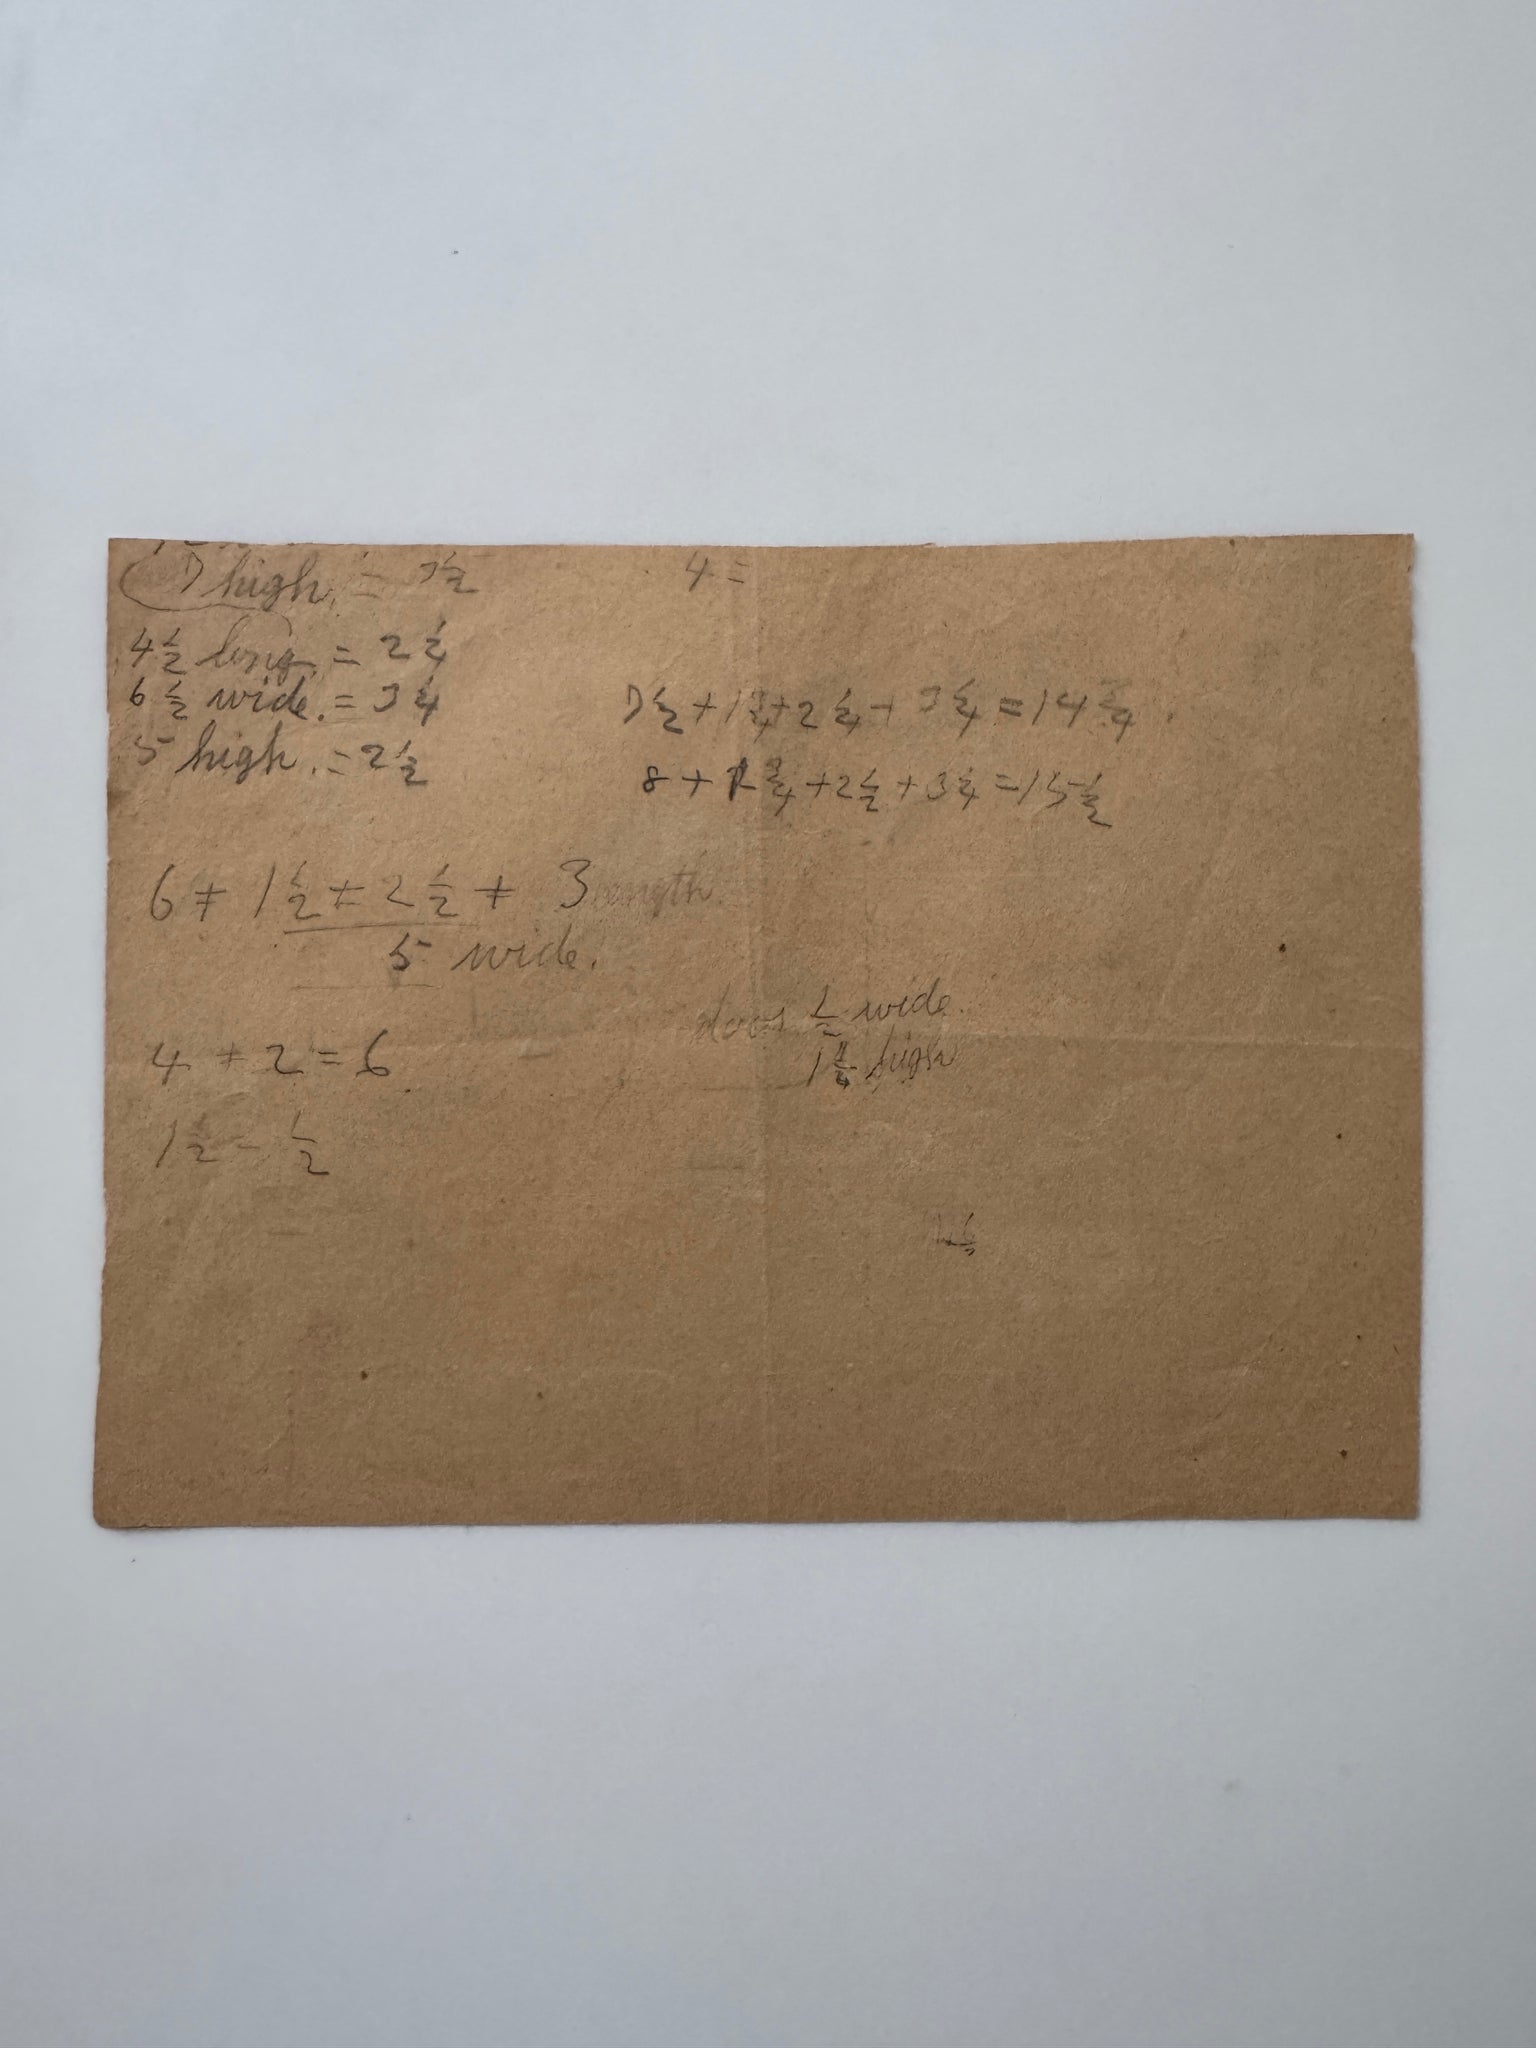 7 high. = 3½
4 =
4½ long. = 2¼
6½ wide. = 3¼
5 high. = 2½
7½ + 1¾ + 2¼ + 3¼ = 14¾
8 + 1¾ + 2½ + 3¼ = 15½
6 + 1½ + 2½ + 3 length.
5 wide.
4 + 2 = 6
1½ - ½
door ½ wide.
1¼ high